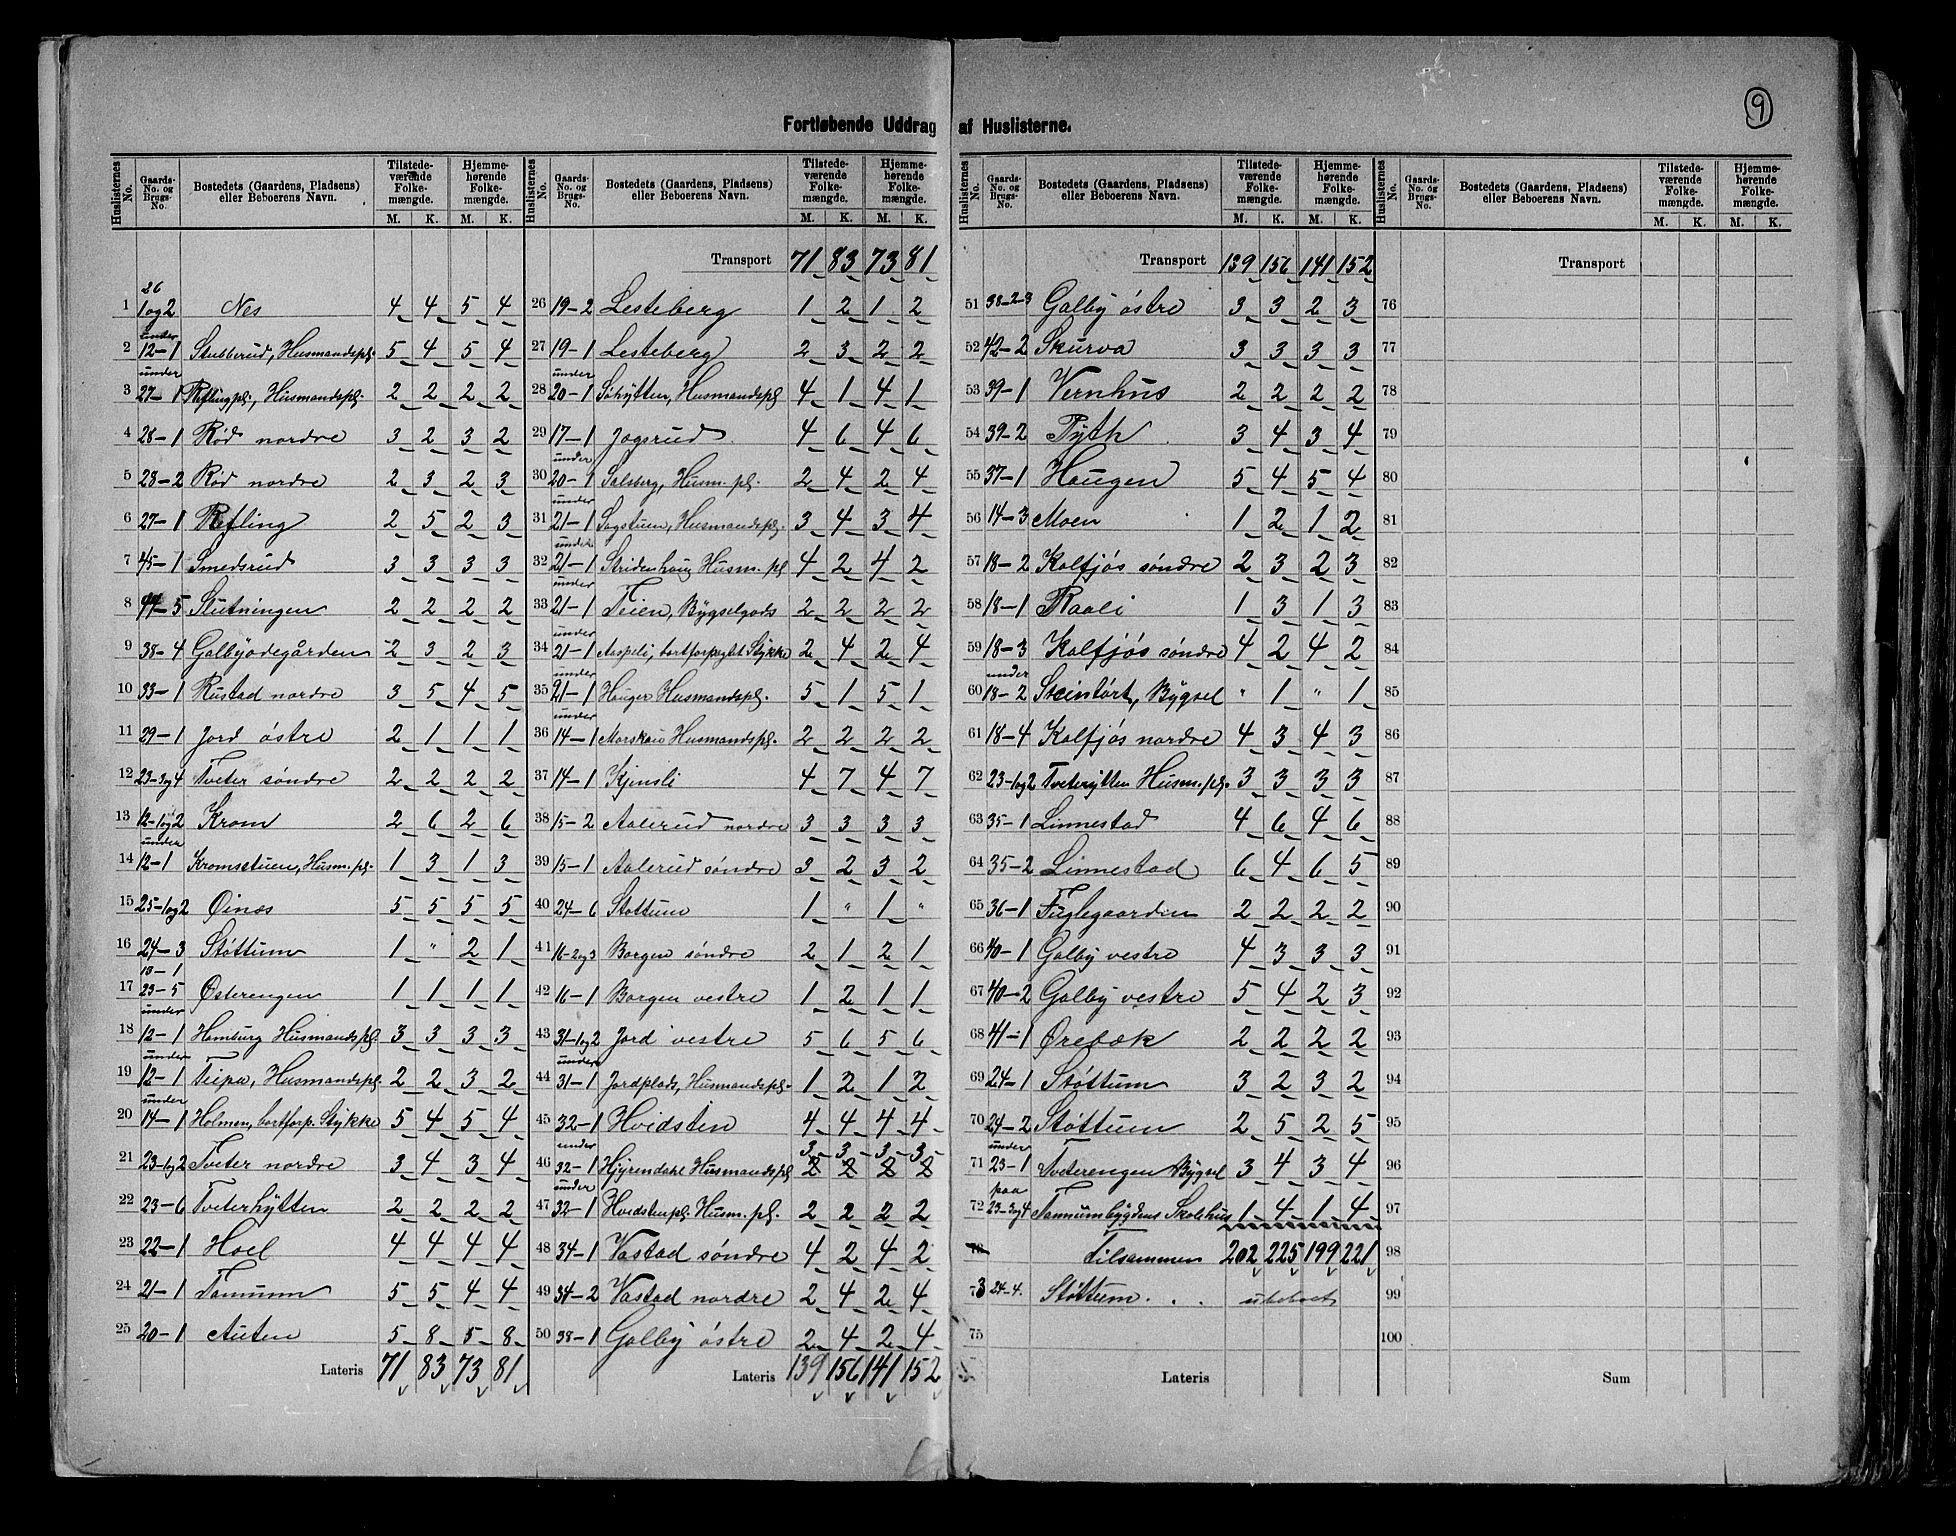 9
Fortløbende Uddrag af Huslisterne.
Huslisternes No. Gaards-No. og Brugs-No. Bostedets (Gaardens, Pladsens) eller Beboerens Navn. Tilstedeværende Folkemængde. M. K. Hjemmehørende Folkemængde. M. K.
1 26 1 og 2 Nes 4 4 5 4
2 under 12-1 Stubberud, Husmandspl. 5 4 5 4
3 under 27-1 Reflingpl., Husmandspl. 2 2 2 2
4 28-1 Rød nordre 3 2 3 2
5 28-2 Rød nordre 2 3 2 3
6 27-1 Refling 2 5 2 3
7 45-1 Smedsrud 3 3 3 3
8 44-5 Slutningen 2 2 2 2
9 38-4 Galbyødegården 2 3 2 3
10 33-1 Rustad nordre 3 5 4 5
11 29-1 Jord østre 2 1 1 1
12 23-3og4 Tveter søndre 2 2 2 2
13 12-1og2 Krom 2 6 2 6
14 under 12-1 Kromsstuen, Husm.pl. 1 3 1 3
15 25-1og2 Øinæs 5 5 5 5
16 24-3 Støttum 1 " 2 1
17 13-1 23-5 Østerengen 1 1 1 1
18 under 12-1 Hamburg Husmandspl. 3 3 3 3
19 under 12-1 Teipa, Husmandspl. 2 2 3 2
20 under 14-1 Holmen, bortforp. Stykke 5 4 5 4
21 23-1og2 Tveter nordre 3 4 3 4
22 23-6 Tveterhytten 2 2 2 2
23 22-1 Hoel 4 4 4 4
24 21-1 Tanum 5 5 4 4
25 20-1 Auten 5 8 5 8
Lateris 71 83 73 81
Huslisternes No. Gaards-No. og Brugs-No. Bostedets (Gaardens, Pladsens) eller Beboerens Navn. Tilstedeværende Folkemængde. M. K. Hjemmehørende Folkemængde. M. K.
Transport 71 83 73 81
26 19-2 Lesteberg 1 2 1 2
27 19-1 Lesteberg 2 3 2 2
28 under 20-1 Søhytten, Husmandspl 4 1 4 1
29 17-1 Jogsrud 4 6 4 6
30 under 20-1 Solsberg, Husm. pl. 2 4 2 4
31 under 21-1 Sogstuen, Husmandspl. 3 4 3 4
32 under 21-1 Stridenhaug Husm. pl 4 2 4 2
33 under 21-1 Teien, Bygselgods 2 2 2 2
34 under 21-1 Aspeli, bortforpagtet Stykke 2 4 2 4
35 under 21-1 Hauger Husmandspl. 5 1 5 1
36 under 14-1 Husmandspl. 2 2 2 2
37 14-1 Kjinsli 4 7 4 7
38 15-2 Aalerud nordre 3 3 3 3
39 15-1 Aalerud søndre 3 2 3 2
40 24-6 Støttum 1 " 1 "
41 16-2og3 Borgen søndre 2 1 2 1
42 16-1 Borgen vestre 1 2 1 1
43 31-1og2 Jord vestre 5 6 5 6
44 under 31-1 Jordplads, Husmandspl. 1 2 1 2
45 32-1 Hvidsten 4 4 4 4
3 3 3 3
46 under 32-1 Hjyrendahl Husmandspl 2 2 2 2
47 under 32-1 Hvidstenpl. Husm. pl. 2 2 2 2
48 34-1 Vastad søndre 4 2 4 2
49 34-2 Vastad nordre 2 4 2 4
50 38-1 Galby østre 2 4 2 4
Lateris 139 156 141 152
Huslisternes No. Gaards-No. og Brugs-No. Bostedets (Gaardens, Pladsens) eller Beboerens Navn. Tilstedeværende Folkemængde. M. K. Hjemmehørende Folkemængde. M. K.
Transport 139 156 141 152
51 38-2-3 Galby østre 3 3 2 3
52 42-2 Skurva 3 3 3 3
53 39-1 Vernhus 2 2 2 2
54 39-2 Pyth 3 4 3 4
55 37-1 Haugen 5 4 5 4
56 14-3 Moen 1 2 1 2
57 18-2 Kolfjøs søndre 2 3 2 3
58 18-1 Raali 1 3 1 3
59 18-3 Kolfjøs søndre 4 2 4 2
60 under 18-2 Steintørt, Bygsel " 1 " 1
61 18-4 Kolfjøs nordre 4 3 4 3
62 23-1og2 Tveterytten Husm.pl. 3 3 3 3
63 35-1 Linnestad 4 6 4 6
64 35-2 Linnestad 6 4 6 5
65 36-1 Fuglegaarden 2 2 2 2
66 40-1 Galby vestre 4 3 3 3
67 40-2 Galby vestre 5 4 2 3
68 41-1 Ørebæk 2 2 2 2
69 24-1 Støttum 3 2 3 2
70 24-2 Støttum 2 5 2 5
71 under 23-1 Tveterengen Bygsel 3 4 3 4
72 paa 23-3og4 Tannumbygdens Skolehus 1 4 1 4
73 Tilsammen 202 225 199 221
73 24-4. Støttum . . ubeboet
75
Lateris
Huslisternes No. Gaards-No. og Brugs-No. Bostedets (Gaardens, Pladsens) eller Beboerens Navn. Tilstedeværende Folkemængde. M. K. Hjemmehørende Folkemængde. M. K.
Transport
76
77
78
79
80
81
82
83
84
85
86
87
88
89
90
91
92
93
94
95
96
97
98
99
100
Sum